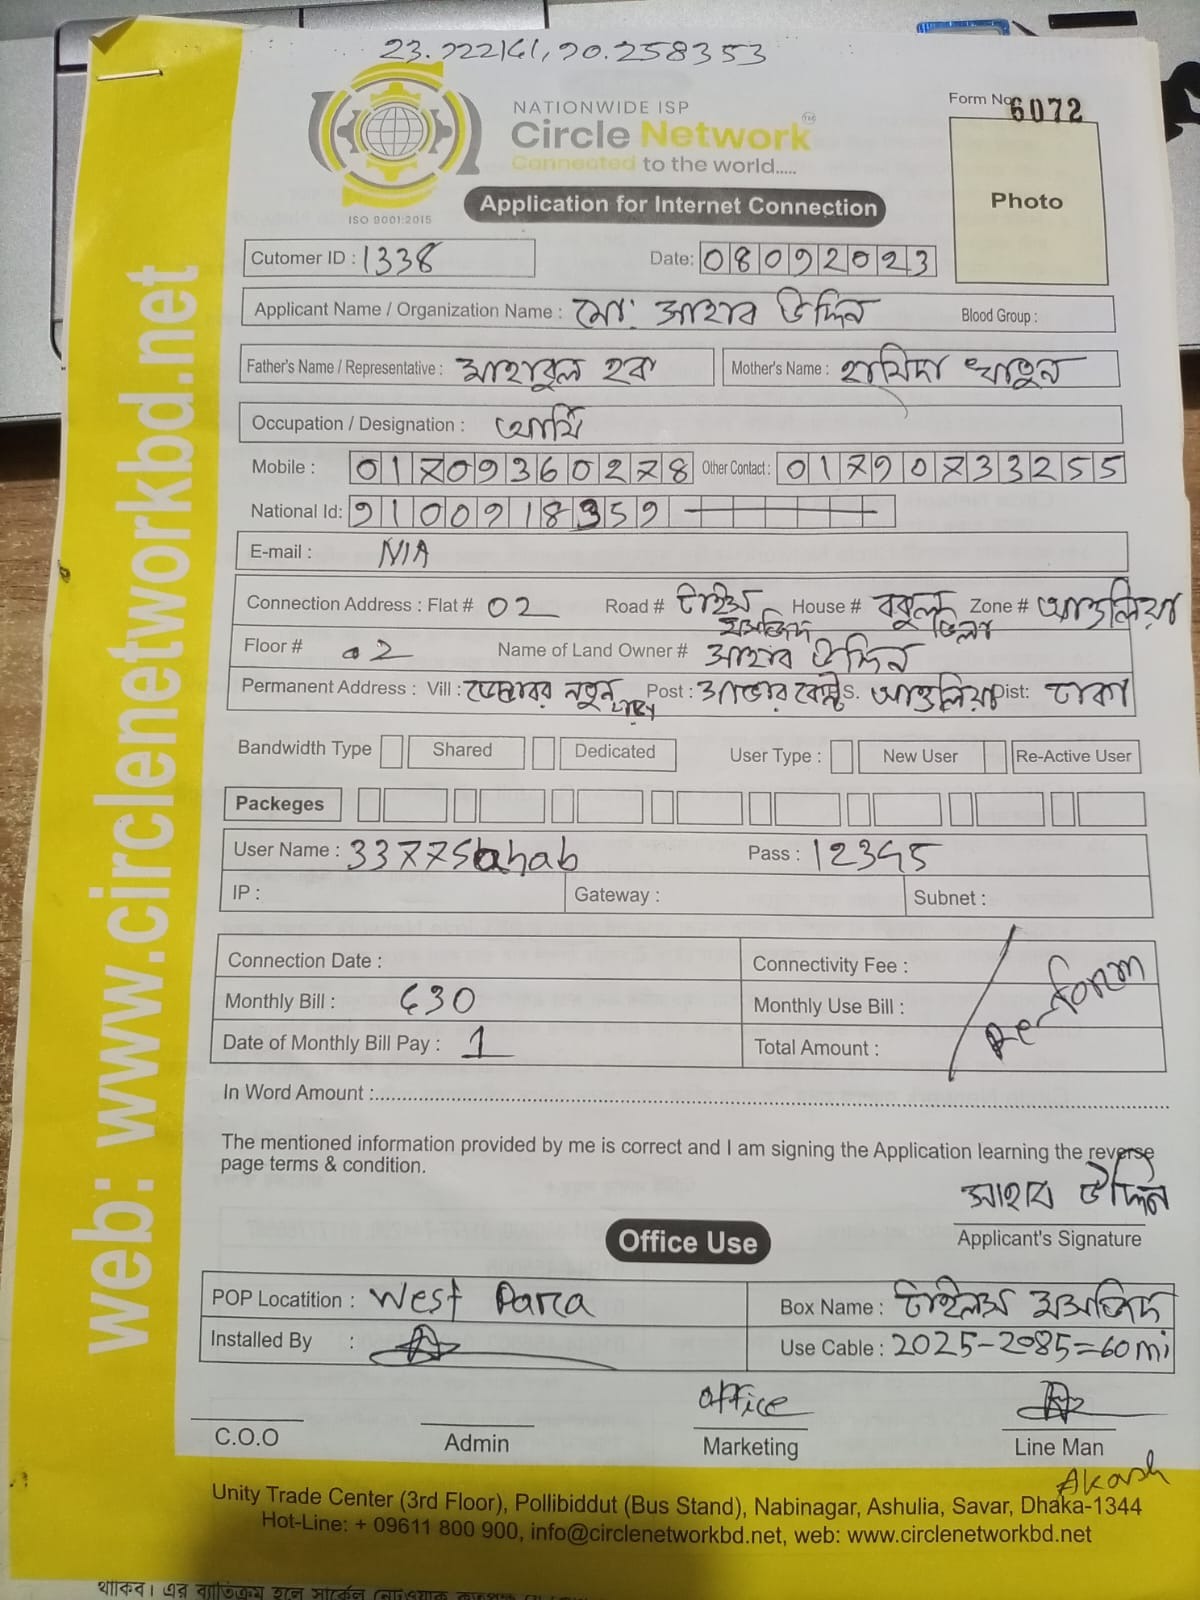 NATIONWIDE ISP
Circle Network TM
Connected to the world.....
ISO 9001:2015
Form No. 6072
Photo
Application for Internet Connection
Cutomer ID : 1338 Date: 08092023
Applicant Name / Organization Name : মো: সাহাব উদ্দিন Blood Group :
Father's Name / Representative : সাহাবুল হক Mother's Name : হামিদা খাতুন
Occupation / Designation : আর্মি
Mobile : 01709360278 Other Contact : 01790733255
National Id: 9100918359
E-mail : N/A
Connection Address : Flat # 02 Road # টাইলস মসজিদ House # বকুল ভিলা Zone # আশুলিয়া
Floor # 02 Name of Land Owner # সাহাব উদ্দিন
Permanent Address : Vill : নতুন Post : P.S. আশুলিয়া Dist: ঢাকা
Bandwidth Type Shared Dedicated User Type : New User Re-Active User
Packeges
User Name : 3377Sahab Pass : 12345
IP : Gateway : Subnet :
Connection Date : Connectivity Fee :
Monthly Bill : 630 Monthly Use Bill :
Date of Monthly Bill Pay : 1 Total Amount :
Re-form
In Word Amount :
The mentioned information provided by me is correct and I am signing the Application learning the reverse
page terms & condition.
সাহাব উদ্দিন
Applicant's Signature
Office Use
POP Locatition : West Para Box Name : টাইলস মসজিদ
Installed By : Use Cable : 2025-2085=60mi
office
C.O.O Admin Marketing Line Man
Akash
Unity Trade Center (3rd Floor), Pollibiddut (Bus Stand), Nabinagar, Ashulia, Savar, Dhaka-1344
Hot-Line: + 09611 800 900, info@circlenetworkbd.net, web: www.circlenetworkbd.net
web: www.circlenetworkbd.net
থাকিব। এর ব্যতিক্রম হলে সার্কেল নেটওয়াক